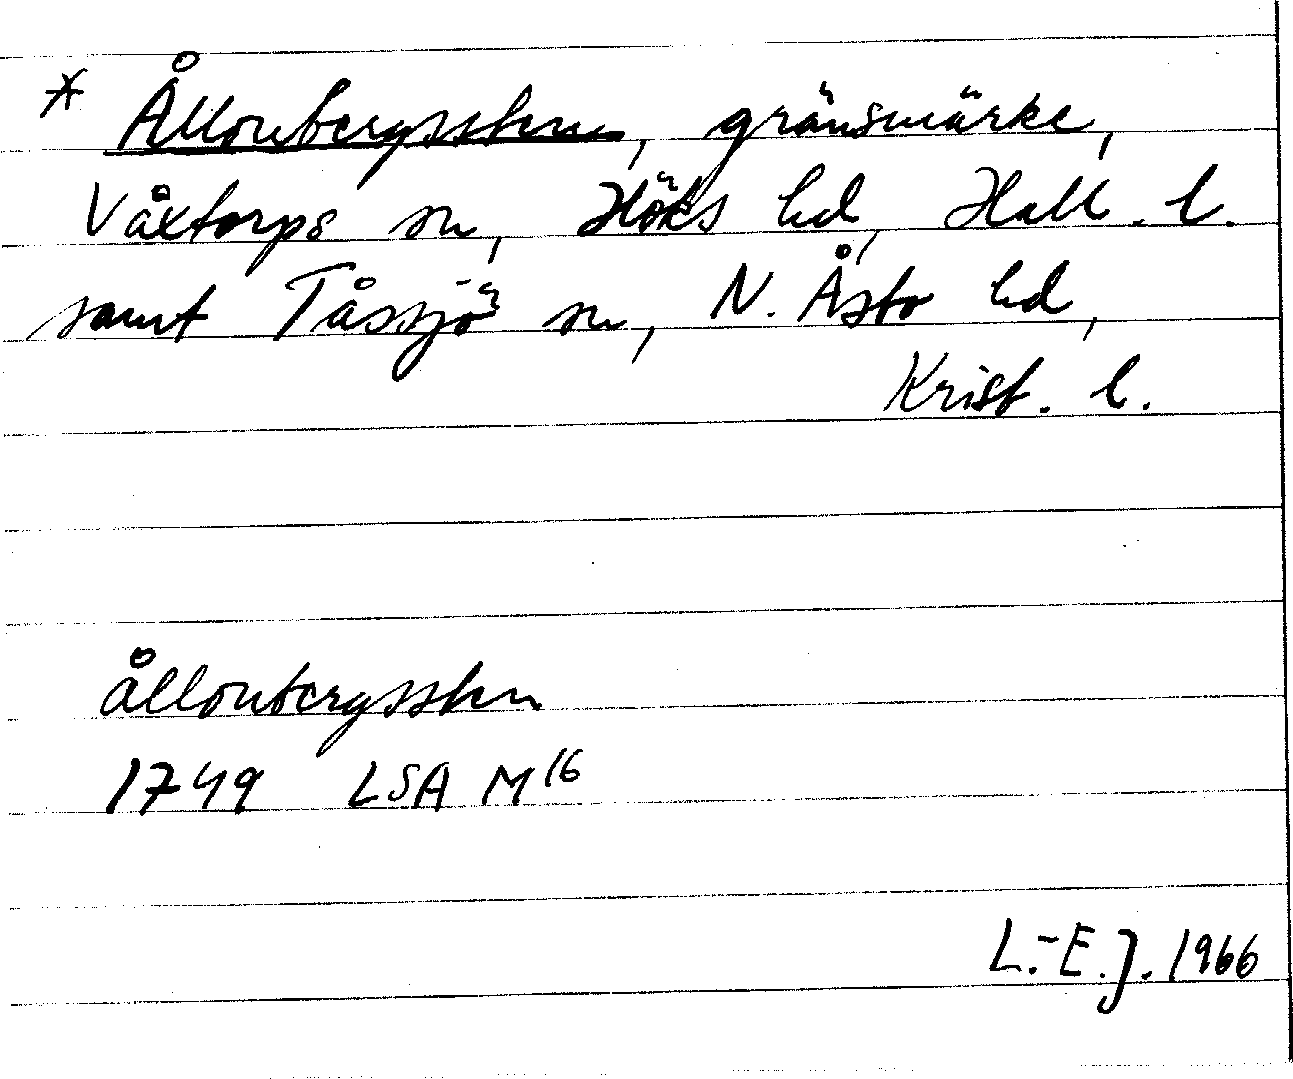 * Ållonbergssten, gränsmärke,
Våxtorps sn, Höks hd, Hall. l.
samt Tåssjö sn, N. Åsbo hd,
Krist. l.
ållonbergssten
1749 LSA M16
L.-E.J. 1966